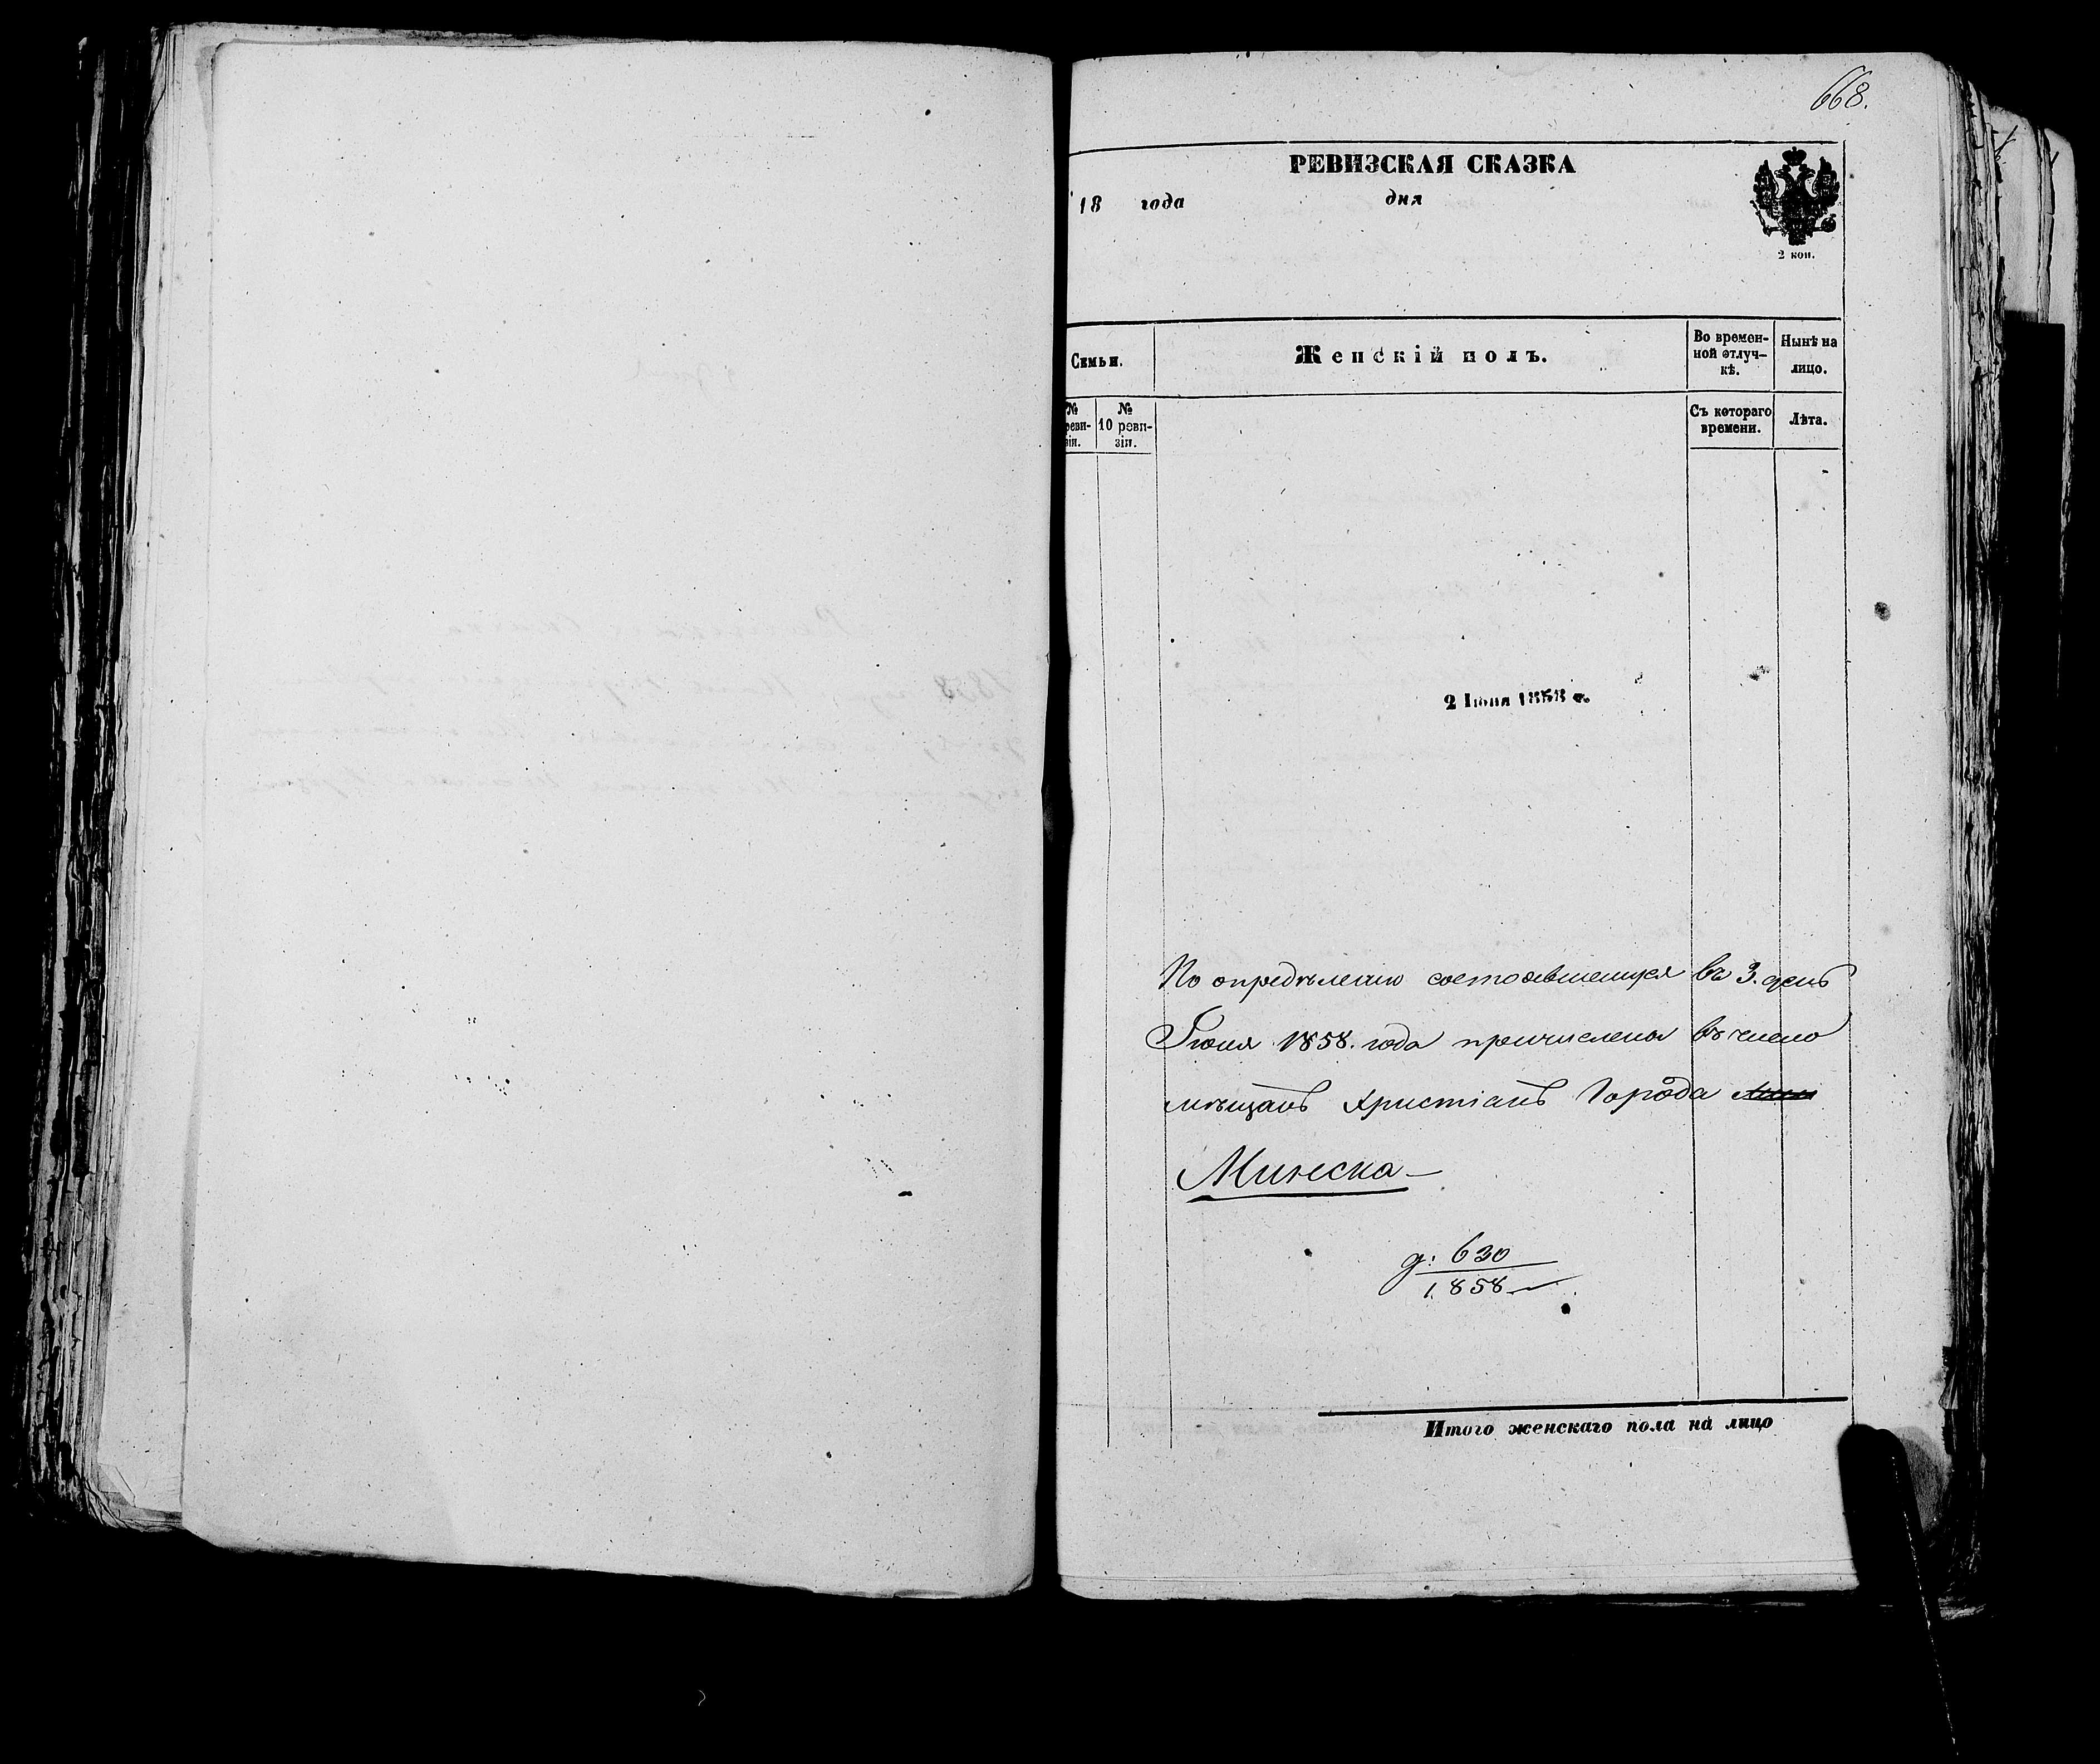 668.
РЕВИЗСКАЯ СКАЗКА
18 года дня
2 коп.
Семьи.
Женскій полъ.
Во времен-
ной отлуч-
кѣ.
Нынѣ на
лицо.
№
реви-
зіи.
№
10 реви-
зіи.
Съ котораго
времени.
Лѣта.
2 Іюня 1858 г.
По опредѣленію состоявшемуся въ 3. день
Іюня 1858. года причислены въ число
мѣщанъ Христіанъ Города
Минска
д: 630
1858
Итого женскаго пола на лицо